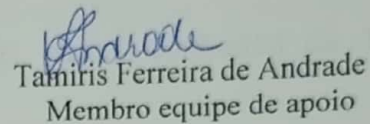 Andrade
Tamiris Ferreira de Andrade
Membro equipe de apoio